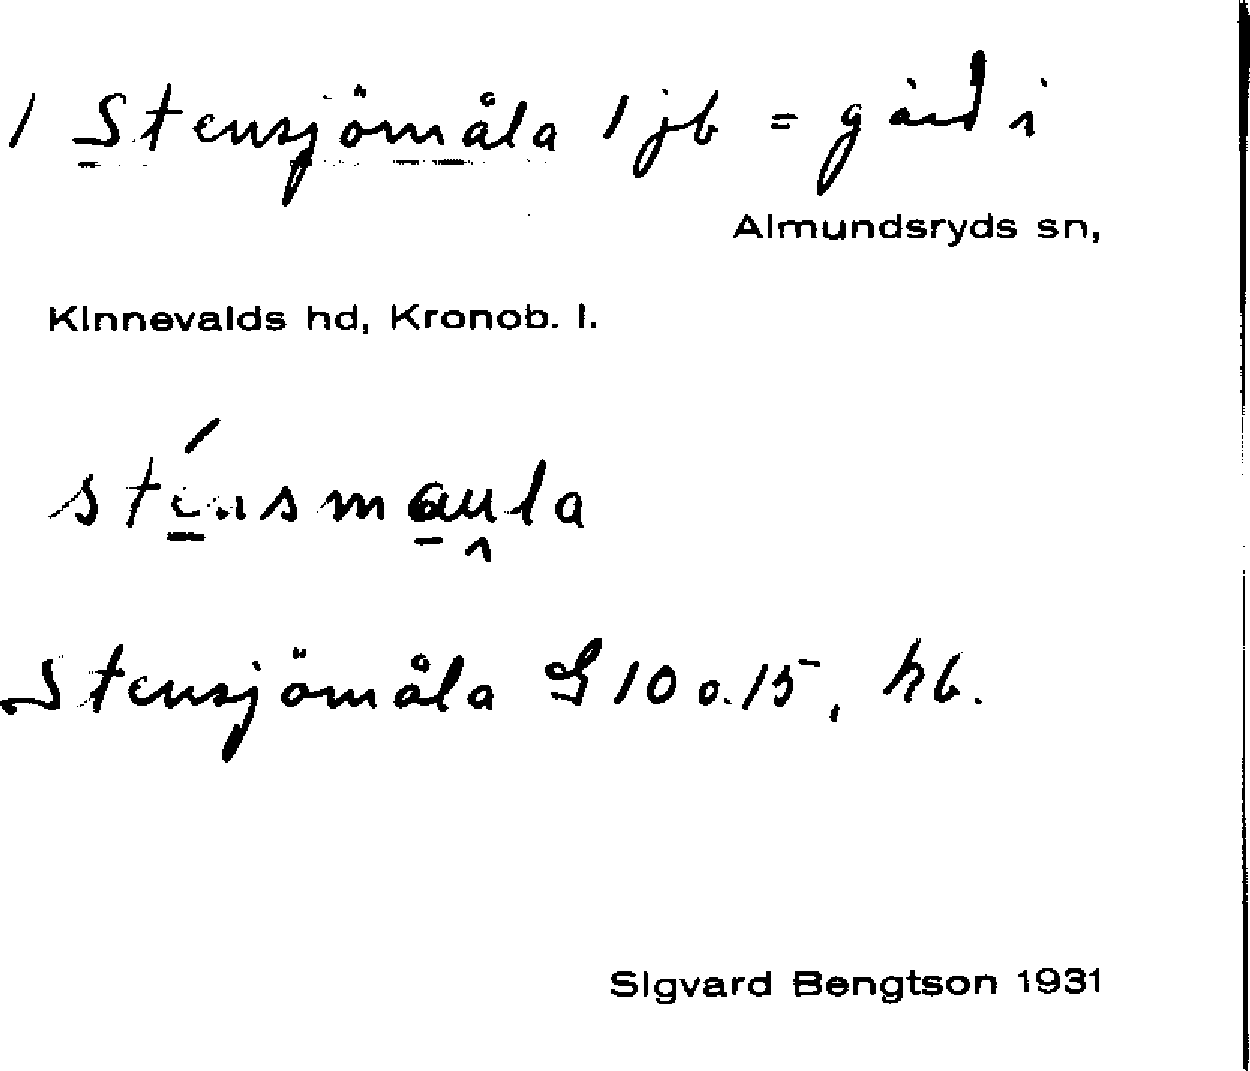 1 Stensjömåla 1 jb = gård i
Almundsryds sn,
Kinnevalds hd, Kronob. l.
sténsmaula
Stensjömåla G 10 o. 15, hb.
Sigvard Bengtson 1931